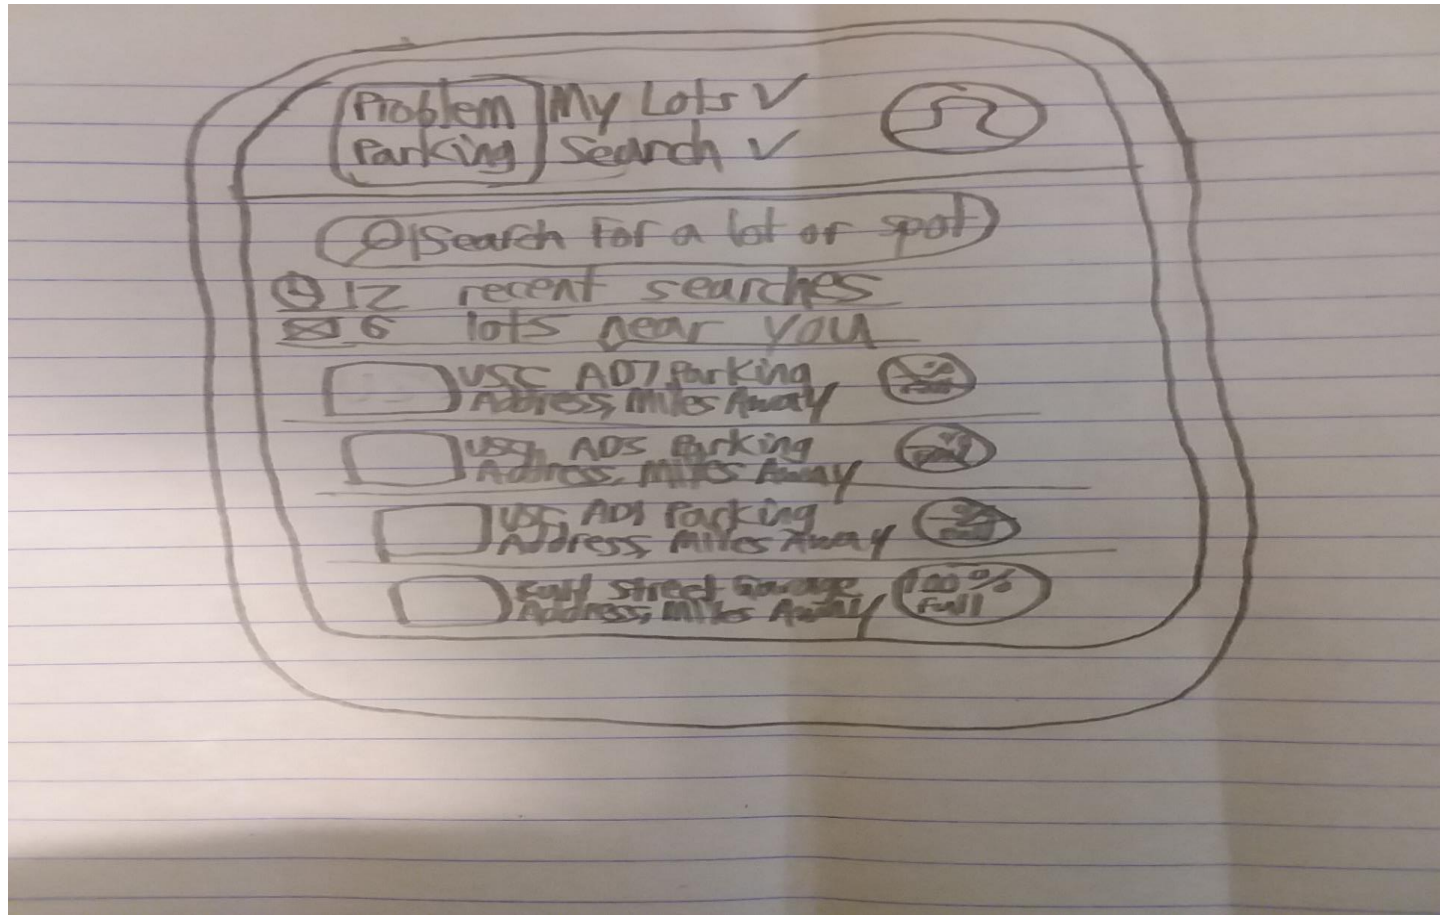 Problem
Parking
My Lots
Search
Search for a lot or spot
12 recent searches
6 lots near you
USC AD7 Parking
Address, Miles Away
USC, AD5 Parking
Address, Miles Away
USC, AD1 Parking
Address, Miles Away
Street Garage
Address, Miles Away
100%
Full